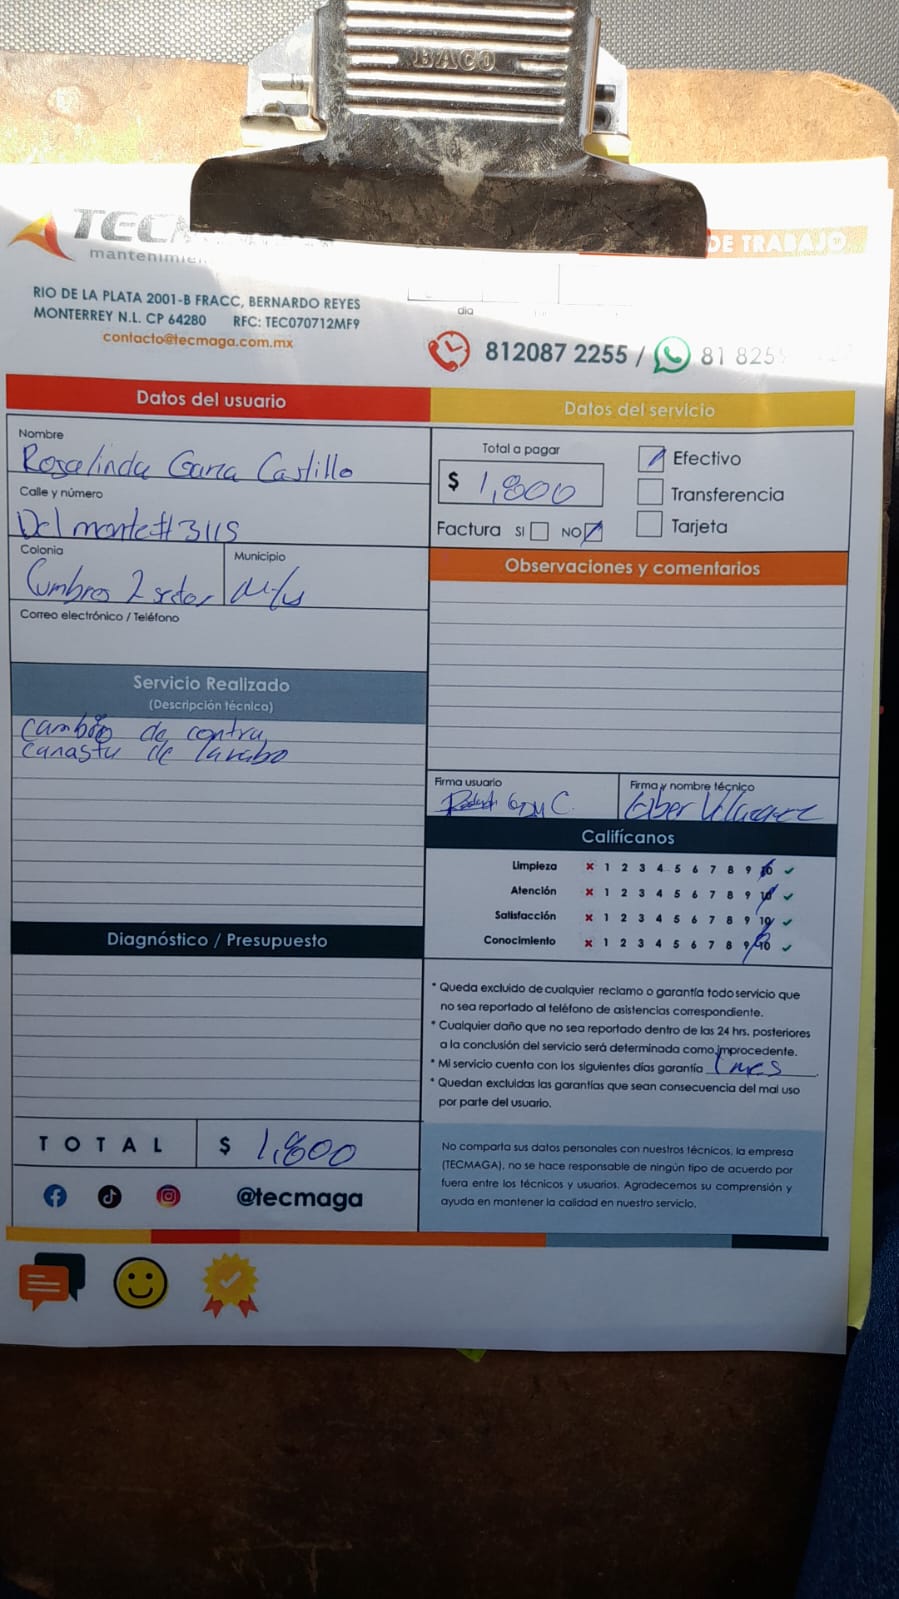 BACO
TEC
mantenimie
DE TRABAJO
RIO DE LA PLATA 2001-B FRACC, BERNARDO REYES
MONTERREY N.L. CP 64280 RFC: TEC070712MF9
contacto@tecmaga.com.mx
dia
812087 2255 / 81 825
Datos del usuario
Nombre
Rosalinda Garza Castillo
Calle y número
Del monte # 3115
Colonia
Cumbres 2 sector
Municipio
Correo electrónico / Teléfono
Servicio Realizado
(Descripción técnica)
cambio de contra
canasta de lavabo
Diagnóstico / Presupuesto
TOTAL $ 1,800
@tecmaga
Datos del servicio
Total a pagar
$ 1,800
Efectivo
Transferencia
Tarjeta
Factura SI NO
Observaciones y comentarios
Firma usuario
Firma y nombre técnico
Califícanos
Limpieza 1 2 3 4 5 6 7 8 9 10
Atención 1 2 3 4 5 6 7 8 9 10
Satisfacción 1 2 3 4 5 6 7 8 9 10
Conocimiento 1 2 3 4 5 6 7 8 9 10
* Queda excluido de cualquier reclamo o garantía todo servicio que
no sea reportado al teléfono de asistencias correspondiente.
* Cualquier daño que no sea reportado dentro de las 24 hrs. posteriores
a la conclusión del servicio será determinada como improcedente.
* Mi servicio cuenta con los siguientes días garantía 1 mes.
* Quedan excluidas las garantías que sean consecuencia del mal uso
por parte del usuario.
No comparta sus datos personales con nuestros técnicos, la empresa
(TECMAGA), no se hace responsable de ningún tipo de acuerdo por
fuera entre los técnicos y usuarios. Agradecemos su comprensión y
ayuda en mantener la calidad en nuestro servicio.